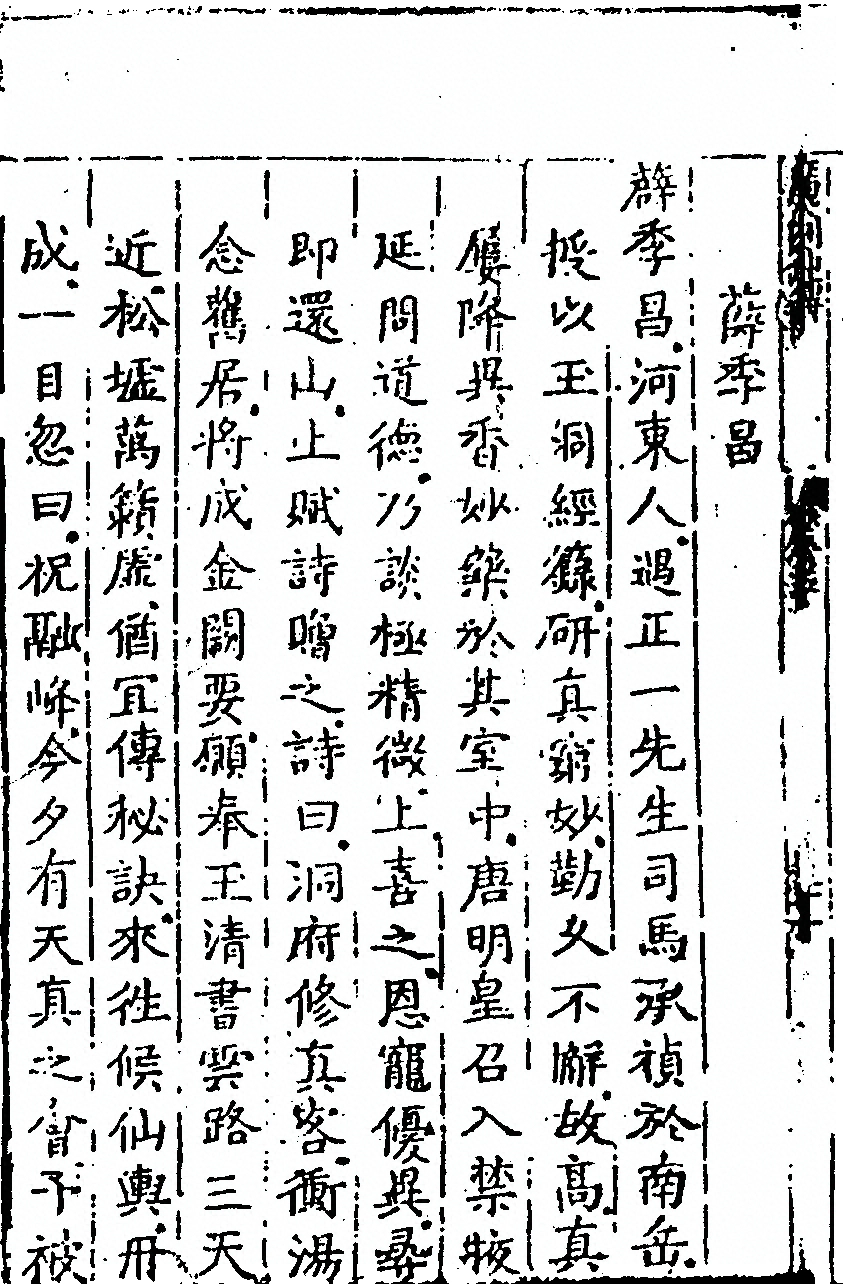 薛季昌
薛季昌河東人遇正一先生司馬承禎於南岳
授以玉洞經籙研真窮妙勤久不懈故高真
屢降異香妙樂於其室中唐明皇召入禁掖
延問道德乃談極精微上喜之恩寵優異尋
即還山上賦詩贈之詩曰洞府修真客衡湯
念舊居將成金闕要願奉玉清書雲路三天
近松墟萬籟虛猶宜傳秘訣來徃候仙輿丹
成一日忽曰祝融峰今夕有天真之會予被